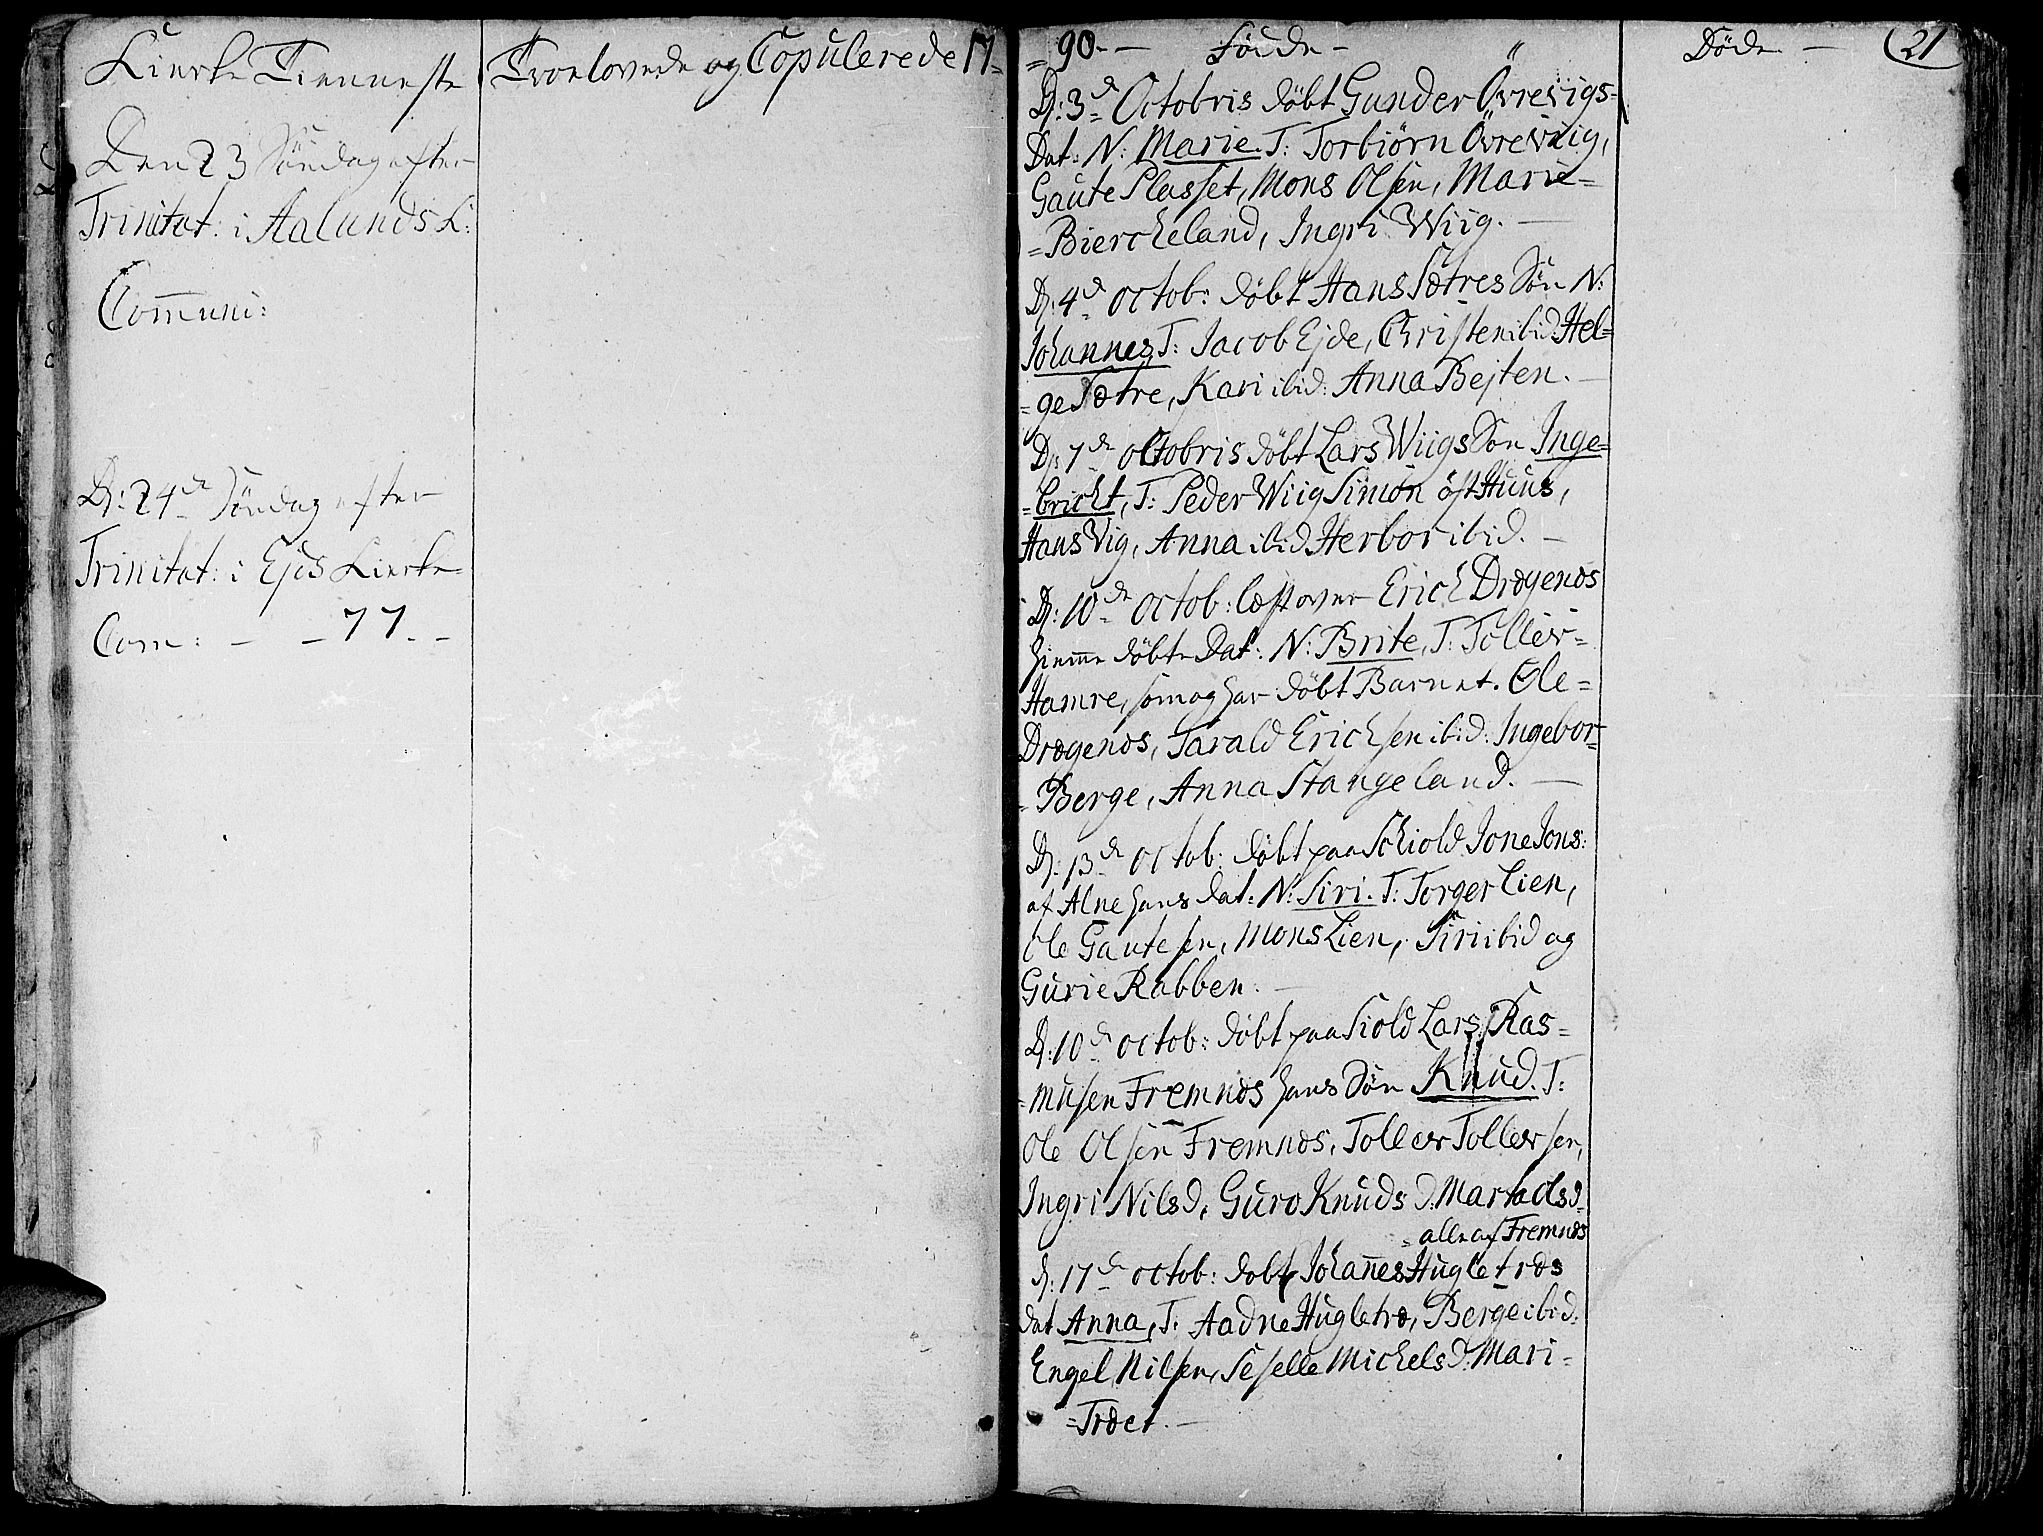 Kierke Tienneste
Den 23 Söndag efter
Trinitat: i Aalunds K:
Com̄uni:
D: 24de Söndag efter
Trinitat: i Ejds Kierke
Com: – – 77. –
Troelovede og Copulerede 17=
=90. – Födde –
D: 3de Octobris döbt Gunder Övrevigs=
Dat: N: Marie. T: Torbiörn Övrevüg,
Gaute Plasset, Mons Olsen, Marie=
=Biercheland, Ingri Wiig. –
D: 4de Octob: döbt Hans Sætres Sön N:
Johannes T: Jacob Ejde, Christen ibid: Hel=
=ge Sætre, Kari ibid: Anna Bejten. –
D: 7de Octobris döbt Lars Wiigs Sön Inge=
=bricht, T: Peder Wiig Simon östHuus,
Hans Vig, Anna ibid Herbor ibid. –
D: 10de Octob: læst over Erich Drægenæs
hiem̄e döbte Dat: N: Brite, T: Tollev=
Hamre, som og har döbt Barnet. Ole=
Drægenæs, Tarald Erichsen ibid: Ingebor=
=Berge, Anna Stangeland. –
D: 13de Octob: döbt paa Schiold Jone Jons:
af Alne hans Dat: N: Siri. T: Torger Lien,
Ole Gautesen, Mons Lien, Siri ibid og
Gurie Rabben. –
D: 10de Octob: döbt paa Siold Lars Ras=
=musen Fremnæs hans Sön Knud. T:
Ole Olsen Fremnæs, Tollev Tollevsen,
Ingri Nilsd, Guro Knuds D. Marta Olsd.
=alle af Fremnæs
D: 17de Octob: döbt Johan̄es Hugletræs
Dat Anna, T: Aadne Hugletræ, Berge ibid:
Engel Nilsen, Seselle Michelsd: Mari=
=Træet. –
Döde –
21